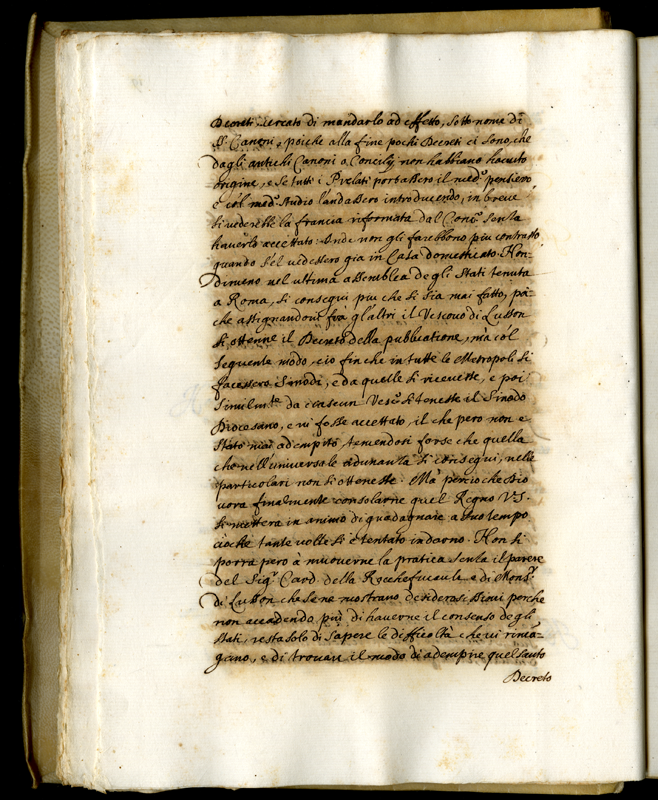 Decreti cercato di mandarlo ad effetto, sotto nome di
SS. Canoni, poiche alla fine pochi Decreti ci sono, che
dagli antichi Canoni o Concilij non habbiano havuto
origine, e se tutti i Prelati portassero il med.o pensiero,
e col med.o studio l'andassero introducendo, in breve
si vederebbe la francia riformata dal Conc.o senza
haverlo accettato: Onde non gli farebbono piu contrasto
quando s'el vedessero gia in Casa domesticato. Non-
dimeno nel ultima assemblea degli Stati tenuta
a Roma, si conseguì piu che si sia mai fatto, per-
che assignandosi frà gl'altri il Vescovo di Lusson
si ottenne il Decreto della publicatione, mà col
sequente modo, cio fin che in tutte le Metropoli si
facessero Sinodi, e da quelle si ricevesse, e poi
similm.te da ciascun Vesc.o si tenesse il Sinodo
Diocesano, e vi fosse accettato, il che pero non e
stato mai adempito temendosi forse che quella
che nell'universale adunanza si conseguì, nelle
particolari non si ottenesse. Mà percioche Dio
vorà finalmente consolarne quel Regno V.S.
si mettera in animo di guadagnare a suo tempo
cioche tante volte si è tentato indarno. Non si
porrà pero à muoverne la pratica senza il parere
del Sig.r Card. della Rochefucault e di Mons.r
di Lusson che se ne mostrano desiderosissimi perche
non accadendo più di haverne il consenso degli
Stati, resta solo di sapere le difficoltà che vi riman-
gano, e di trovare il modo di adempire quel santo
Decreto